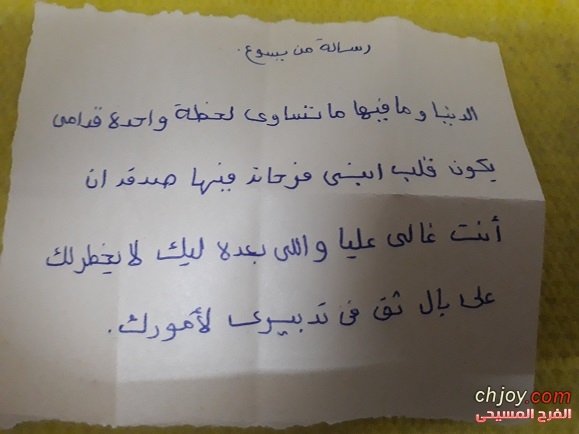 رسالة من يسوع.
الدنيا وما فيها ما تساوى لحظة واحدة قدامى
يكون قلب ابنى فرحان فيها صدقد ان
أنت غالى عليا واللى بعده ليك لا يخطر لك
على بال ثق فى تدبيرى لأمورك.
chjoy.com
الفرح المسيحى